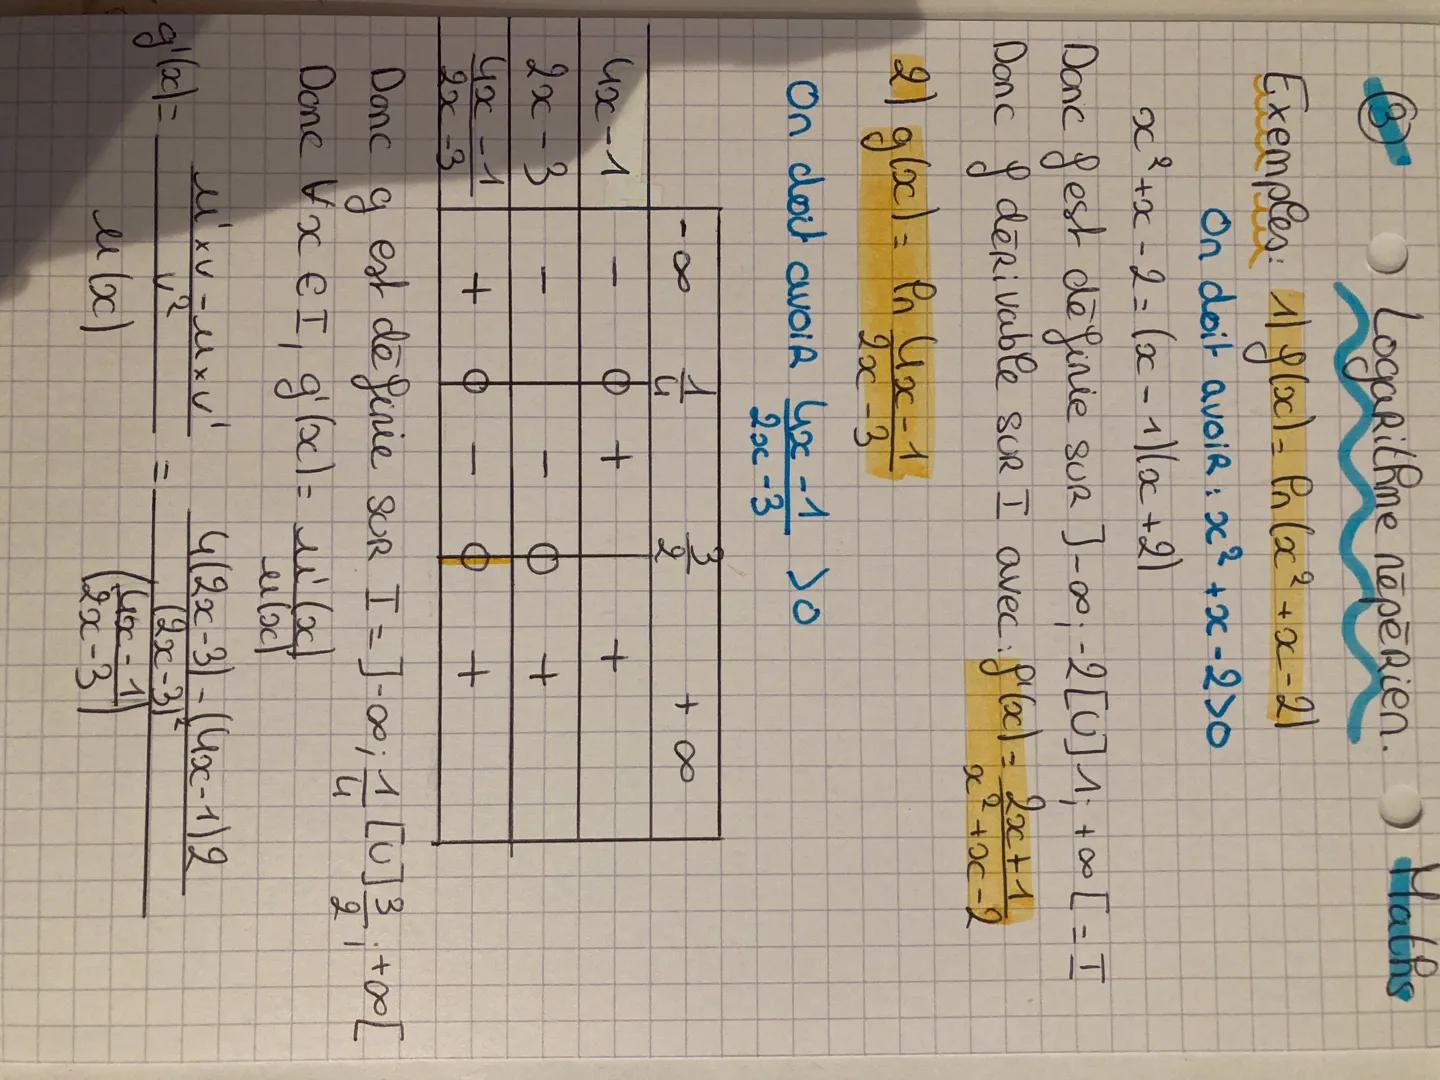 ③ Logarithme népérien. Maths
Exemples: 1) f(x) = ln(x² + x - 2)
On doit avoir : x² + x - 2 > 0
x² + x - 2 = (x - 1)(x + 2)
Donc f est définie sur ]-∞; -2[ U ]1; +∞[ = I
Donc f dérivable sur I avec : f'(x) = \frac{2x+1}{x²+x-2}
2) g(x) = ln \frac{4x-1}{2x-3}
On doit avoir \frac{4x-1}{2x-3} > 0
-∞ \frac{1}{4} \frac{3}{2} +∞
4x-1 - 0 + +
2x-3 - - 0 +
\frac{4x-1}{2x-3} + 0 - 0 +
Donc g est définie sur I = ]-∞; \frac{1}{4}[ U ]\frac{3}{2}; +∞[
Donc ∀x ∈ I, g'(x) = \frac{u'(x)}{u(x)}
g'(x) = \frac{\frac{u'×v - u×v'}{v²}}{u(x)} = \frac{\frac{4(2x-3) - (4x-1)2}{(2x-3)²}}{(\frac{4x-1}{2x-3})}